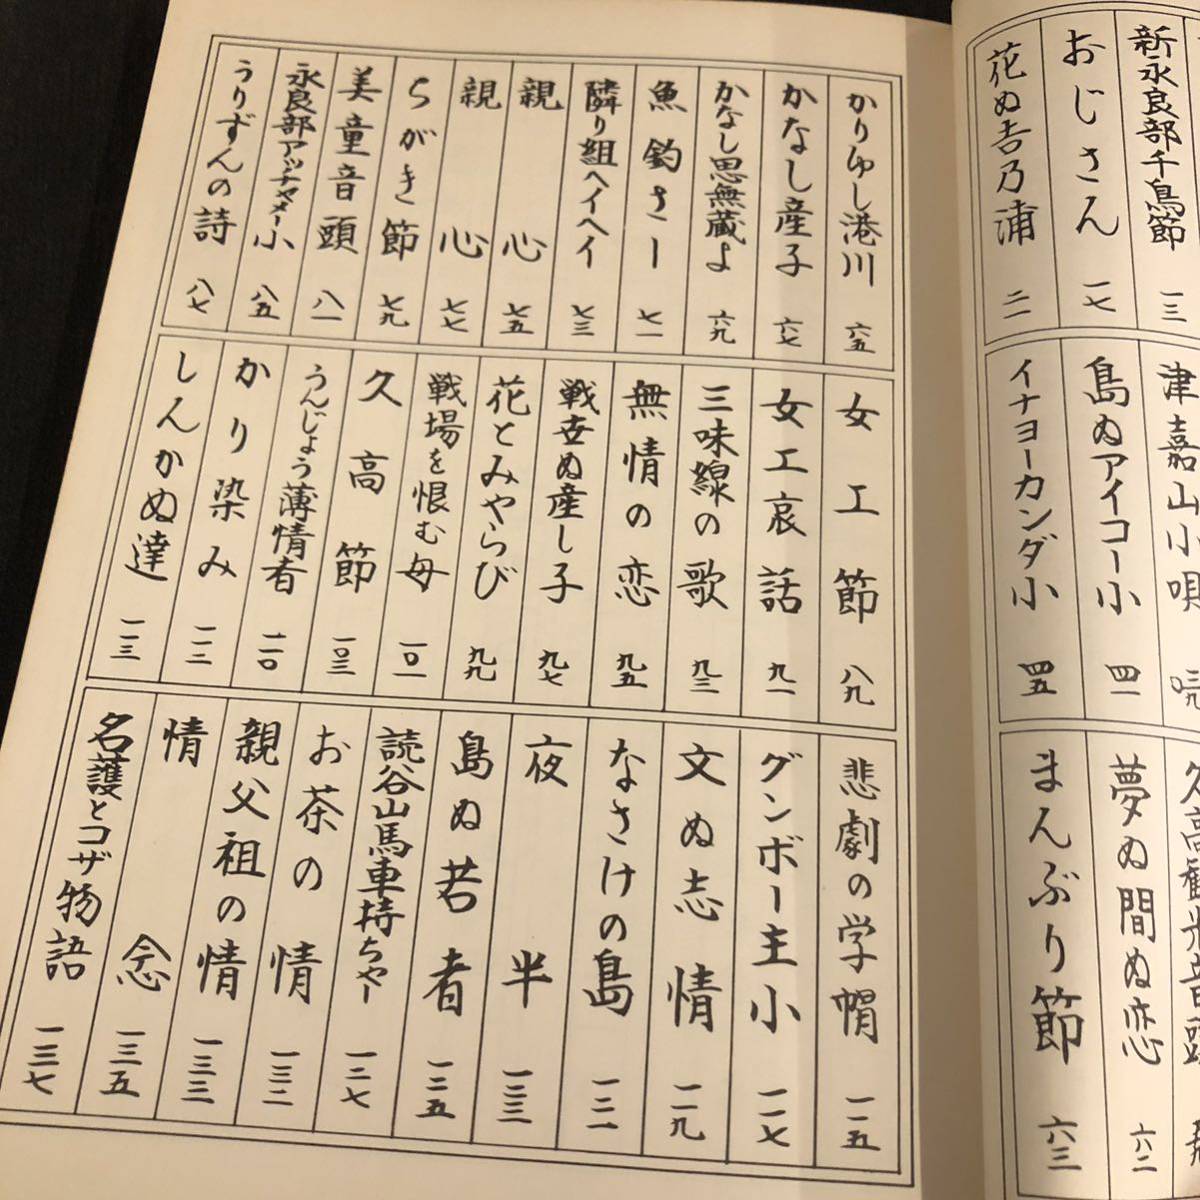 新永良部千鳥節 一三
おじさん 一七
花ぬ吉乃浦 二一
津嘉山小唄
島ぬアイコー小 四一
イナヨーカンダ小 四五
夢ぬ間ぬ恋 六二
まんぶり節 六三
かりゆし港川 六五
かなし産子 六七
かなし思無蔵よ 六九
魚釣さー 七一
隣り組ヘイヘイ 七三
親心 七五
親心 七七
ちがき節 七九
美童音頭 八一
永良部アッチャメー小 八五
うりずんの詩 八七
女工節 八九
女工哀話 九一
三味線の歌 九三
無情の恋 九五
戦世ぬ産し子 九七
花とみやらび 九九
戦場を恨む母 一〇一
久高節 一〇三
うんじょう薄情者 一一〇
かり染み 一一二
しんかぬ達 一一三
悲劇の学帽 一一五
グンボー主小 一一七
文ぬ志情 一一九
なさけの島 一二一
夜半 一二三
島ぬ若者 一二五
読谷山馬車持ちゃー 一二七
お茶の情 一三二
親父祖の情 一三三
情念 一三五
名護とコザ物語 一三七